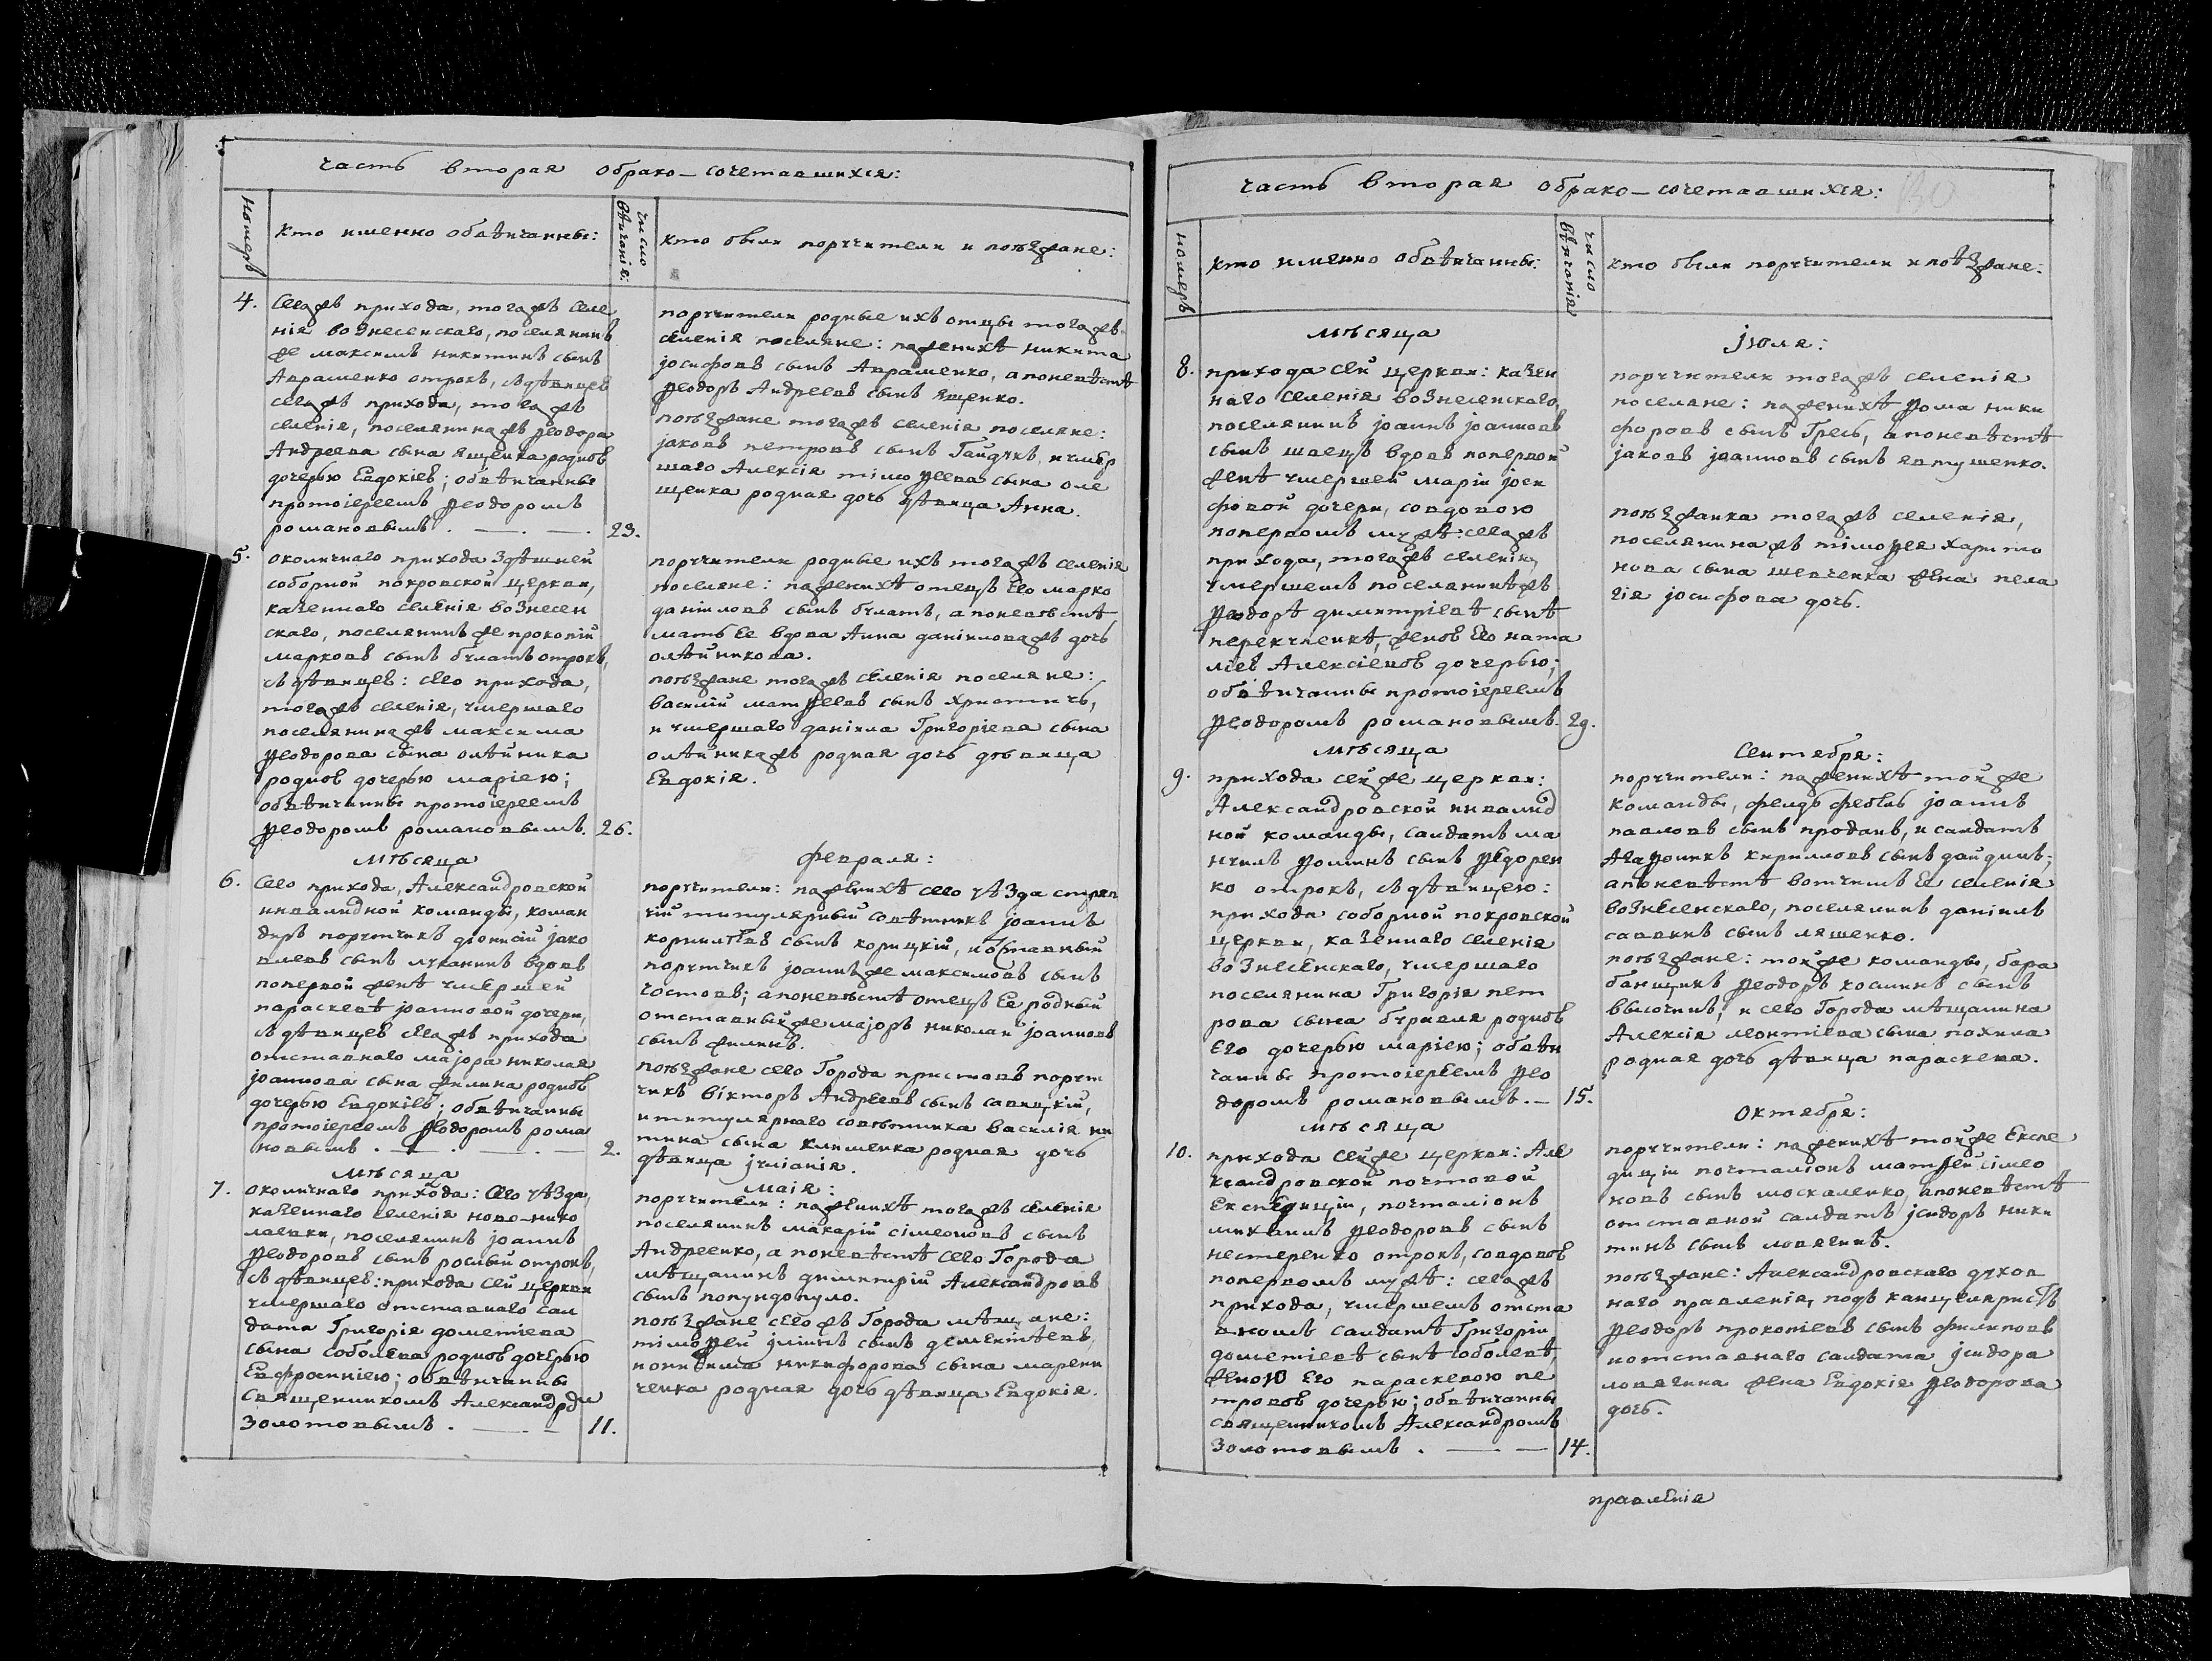 часть вторая обрако-сочетавшихся:
номеръ
кто именно обвѣнчанны:
число вѣнчанія:
кто были порꙋчители и поѣзжане:
4.
Сегожъ прихода, тогожъ селе
нія вознесенскаго, поселянинъ
же максимъ никитинъ сынъ
Авраменко отрокъ, съ дѣвицеѣ
сегожъ прихода, тогожъ
селенія, поселянинажъ Ѳеодора
Андреева сына ященка родноѣ
дочерью Евдокіеѣ; обвѣнчанны
протоіереемъ Ѳеодоромъ
романовымъ.
23.
порꙋчители родные ихъ отцы тогожъ
селенія поселяне: поженихѣ никита
јосифовъ сынъ Авраменко, а поневѣстѣ
Ѳеодоръ Андреевъ сынъ ященко.
поѣзжане тогожъ селенія поселяне:
јаковъ петровъ сынъ Гайдꙋкъ, и ꙋмер
шаго Алексія тімоѳеева сына оле
щенка родная дочь дѣвица Анна.
5.
околичнаго прихода здѣшней
соборной покровской церкви,
казеннаго селенія вознесен
скаго, поселянинъ же прокопій
марковъ сынъ бꙋлатъ отрокъ,
съ дѣвицеѣ: сего прихода,
тогожъ селенія, ꙋмершаго
поселянинажъ максима
Ѳеодорова сына олѣйника
родноѣ дочерью маріею;
обвѣнчанны протоіереемъ
Ѳеодоромъ романовымъ.
26.
порꙋчители родные ихъ тогожъ селенія
поселяне: поженихѣ отецъ его марко
даніиловъ сынъ бꙋлатъ, а поневѣстѣ
мать ее вдова Анна даніиловажъ дочь
олѣйникова.
поѣзжане тогожъ селенія поселяне:
василій матѳеевъ сынъ христичъ,
и ꙋмершаго даніила Григоріева сына
олѣйникажъ родная дочь дѣвица
Евдокія.
мѣсяца
февраля:
6.
Сего прихода, Александровской
инвалидной команды, коман
диръ порꙋтчикъ діонисій јако
влевъ сынъ лꙋканинъ вдовъ
попервой женѣ ꙋмершей
параскевѣ јоанновой дочери,
съ дѣвицеѣ сегожъ прихода
отставнаго маіора николая
јоаннова сына филина родноѣ
дочерью Евдокіеѣ; обвѣнчанны
протоіереемъ Ѳеодоромъ рома
новымъ.
2.
порꙋчители: поженихѣ сего ꙋѣзда стряп
чій титꙋлярный совѣтникъ јоаннъ
корниліевъ сынъ корицкій, и отставный
порꙋтчикъ јоаннъ же максимовъ сынъ
гостовъ; а поневѣстѣ отецъ ее родный
отставный же маіоръ николай јоанновъ
сынъ филинъ.
поѣзжане сего Города приставъ порꙋт
чикъ вікторъ Андреевъ сынъ савицкій,
и титꙋлярнаго совѣтника василія ни
тина сына клименка родная дочь
дѣвица јꙋліанія.
мѣсяца
маія:
7.
околичнаго прихода: сего ꙋѣзда,
казеннаго селенія ново-нико
лаевки, поселянинъ јоаннъ
Ѳеодоровъ сынъ рослый отрокъ,
съ дѣвицеѣ: прихода сей церкви
ꙋмершаго отставнаго сал
дата Григорія дометіева
сына соболева родноѣ дочерью
Евфросиніею; обвѣнчанны
священникомъ Александромъ
Золотовымъ.
11.
порꙋчители: поженихѣ тогожъ селенія
поселянинъ макарій сімеоновъ сынъ
Андреенко, а поневѣстѣ сего Города
мѣщанинъ димитрій Александровъ
сынъ попꙋндопꙋло.
поѣзжане сегожъ Города мѣщане:
тімоѳей іліинъ сынъ дементіевъ,
и онисима никифорова сына марени
ченка родная дочь дѣвица Евдокія.
часть вторая обрако-сочетавшихся:
номеръ
кто именно обвѣнчанны:
число вѣнчанія
кто были порꙋчители и поѣзжане:
мѣсяца
јюля:
8.
прихода сей церкви: казен
наго селенія вознесенскаго,
поселянинъ јоаннъ јоанновъ
сынъ швецъ вдовъ попервой
женѣ ꙋмершей маріи јоси
фовой дочери, совдовою
попервомъ мꙋжѣ: сегожъ
прихода, тогожъ селенія,
ꙋмершемъ поселянинѣжъ
Ѳеодорѣ димитріевѣ сынѣ
перекꙋпенкѣ, женоѣ его ната
ліеѣ Алексіевоѣ дочерью;
обвѣнчанны протоіереемъ
Ѳеодоромъ романовымъ.
29.
порꙋчители тогожъ селенія
поселяне: поженихѣ Ѳома ники
форовъ сынъ Гресь, а поневѣстѣ
јаковъ јоанновъ сынъ явтꙋшенко.
поѣзжанка тогожъ селенія,
поселянинажъ тімоѳея харито
нова сына шевченка жена пела
гія јосифова дочь.
мѣсяца
Сентебря:
9.
прихода сейже церкви:
Александровской инвалид
ной команды, салдатъ ма
нꙋилъ Ѳоминъ сынъ Ѳедорен
ко отрокъ, съ дѣвицею:
прихода соборной покровской
церкви, казеннаго селенія
вознесенскаго, ꙋмершаго
поселянина Григорія пет
рова сына бꙋравля родноѣ
его дочерью маріею; обвѣн
чанны протоіереемъ Ѳео
доромъ романовымъ.
15.
порꙋчители: поженихѣ тойже
команды, фелдъфебель јоаннъ
павловъ сынъ проданъ, и салдатъ
Агаѳоникъ кирилловъ сынъ дайдинъ;
а поневѣстѣ вотчимъ ее селенія
вознесенскаго, поселянинъ даніилъ
саввинъ сынъ ляшенко.
поѣзжане: тойже команды, бара
банщикъ Ѳеодоръ косминъ сынъ
высочинъ, и сего Города мѣщанина
Алексія леонтіева сына похила
родная дочь дѣвица параскева.
мѣсяца
Октебря:
10.
прихода сейже церкви: Але
ксандровской почтовой
Експедиціи, почталіонъ
михаилъ Ѳеодоровъ сынъ
нестеренко отрокъ, совдовоѣ
попервомъ мꙋжѣ: сегожъ
прихода, ꙋмершемъ отста
вномъ салдатѣ Григоріи
дометіевѣ сынѣ соболевѣ,
женою его параскевою пе
тровоѣ дочерью; обвѣнчанны
священникомъ Александромъ
Золотовымъ.
14.
порꙋчители: поженихѣ тойже Експе
диціи почталіонъ матѳей сімео
новъ сынъ москаленко, а поневѣстѣ
отставной салдатъ јсидоръ ники
тинъ сынъ ловягинъ.
поѣзжане: Александровскаго дꙋхов
наго правленія, подъ канцеляристъ
Ѳеодоръ прокопіевъ сынъ филиповъ
и отставнаго салдата јсидора
ловягина жена Евдокія Ѳеодорова
дочь.
правленія